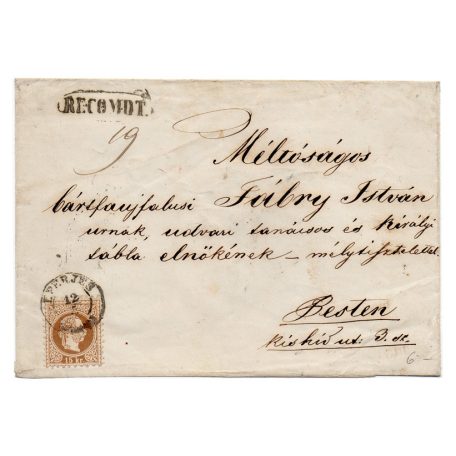 RECOMDT.
19
Méltóságos
bártfaujfalusi Fábry István
urnak, udvari tanácsos és királyi
tábla elnökének – mélytisztelettel
Pesten
kishid ut: 3. sz.
EPERJES
12
15 kr.
6.–